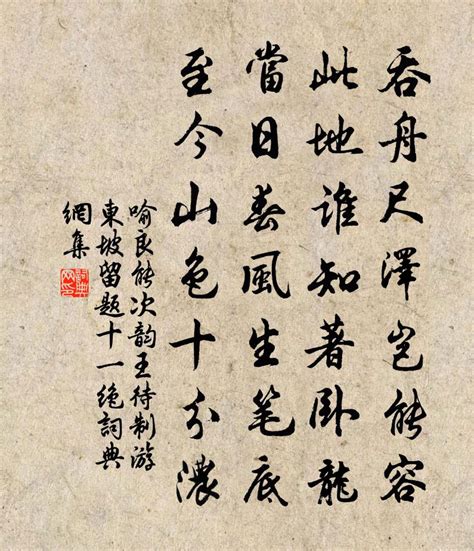 吞舟尺澤豈能容
此地誰知著臥龍
當日春風生笔底
至今山色十分濃
喻良能次韵王待制游
東坡留题十一绝詞典
網集